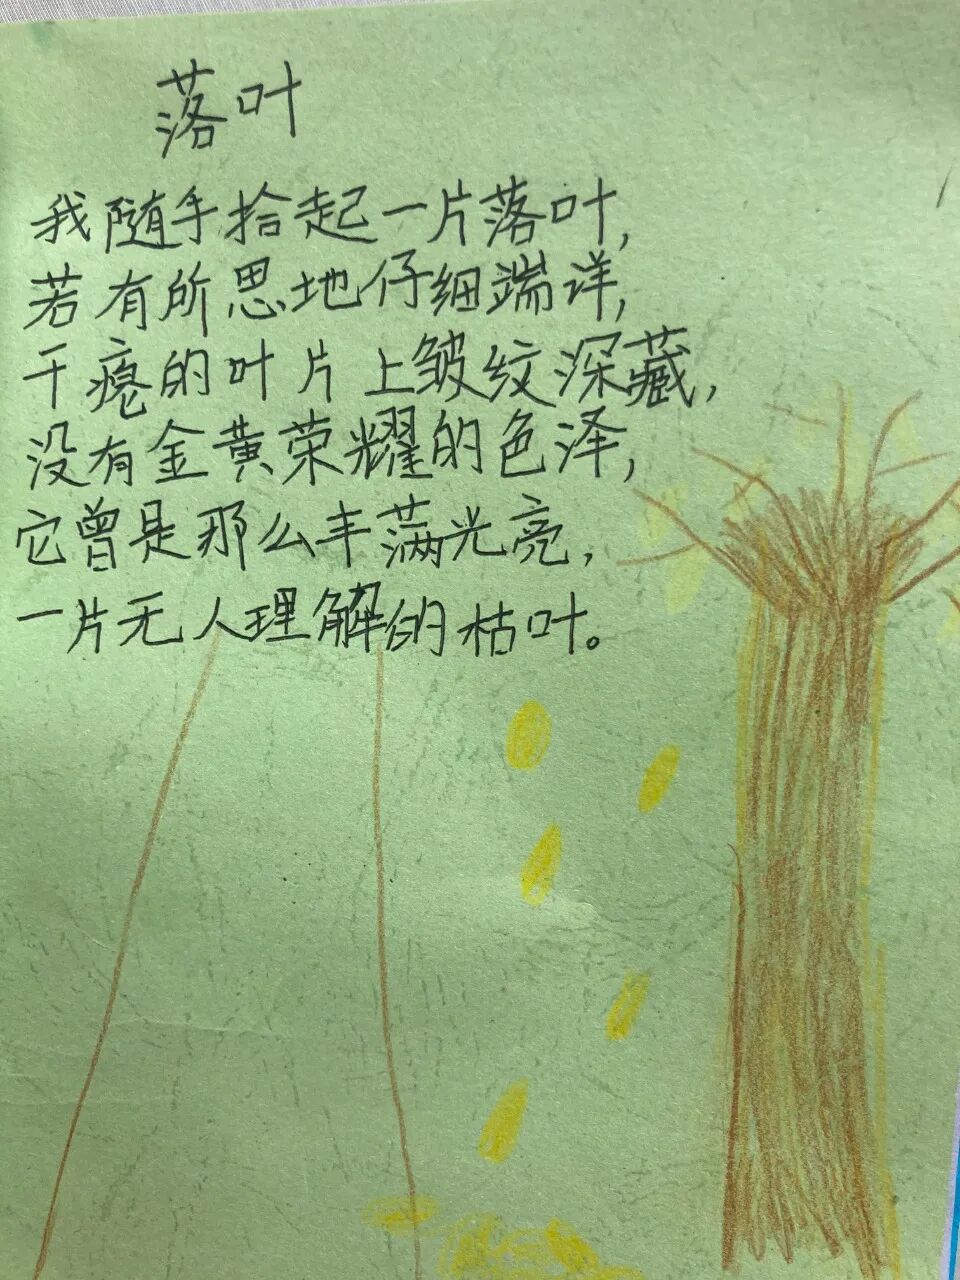 落叶
我随手拾起一片落叶,
若有所思地仔细端详,
干瘪的叶片上皱纹深藏,
没有金黄荣耀的色泽,
它曾是那么丰满光亮,
一片无人理解的枯叶。